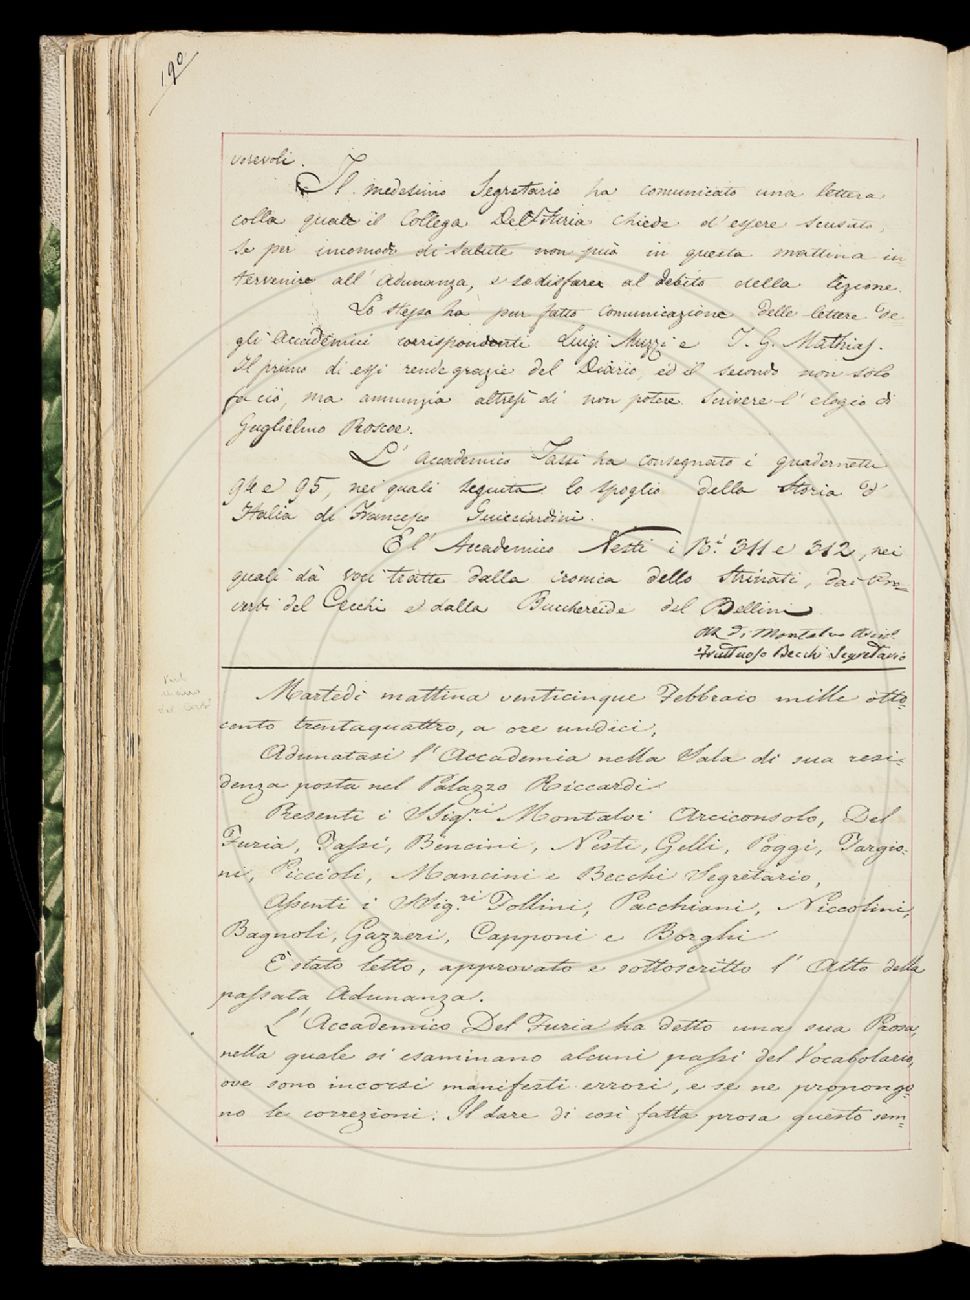 190
vorevoli.
Il medesimo Segretario ha comunicato una lettera
colla quale il Collega Del Furia chiede d'essere scusato,
se per incomodo di salute non può in questa mattina in-
tervenire all'Adunanza, e sodisfare al debito della lezione.
Lo stesso ha pur fatto comunicazione delle lettere de-
gli Accademici corrispondenti Luigi Muzzi e T. G. Mathias.
Il primo di essi rende grazie del Diario, ed il secondo non solo
fa ciò, ma annunzia altresì di non potere scrivere l'elogio di
Guglielmo Roscoe.
L'Accademico Tassi ha consegnato i quadernetti
94 e 95, nei quali seguita lo spoglio della Storia d'
Italia di Francesco Guicciardini.
E l'Accademico Nesti i N.i 311 e 312, nei
quali dà voci tratte dalla cronica dello Strinati, dai Pro-
verbi del Cecchi e dalla Buchereide del Bellini.
di Montalvo
Fruttuoso Becchi Segretario
Martedì mattina venticinque Febbraio mille otto-
cento trentaquattro, a ore undici,
Adunatasi l'Accademia nella Sala di sua resi-
denza posta nel Palazzo Riccardi
Presenti i SSig.ri Montalvi Arciconsolo, Del
Furia, Tassi, Bencini, Nesti, Gelli, Poggi, Targio-
ni, Piccioli, Mancini e Becchi Segretario,
Assenti i SSig.ri Follini, Pacchiani, Niccolini,
Bagnoli, Gazzeri, Capponi e Borghi
È stato letto, approvato e sottoscritto l'Atto della
passata Adunanza.
L'Accademico Del Furia ha detto una sua Prosa,
nella quale si esaminano alcuni passi del Vocabolario,
ove sono incorsi manifesti errori, e se ne propongo-
no le correzioni. Il dare di così fatta prosa questo sem-